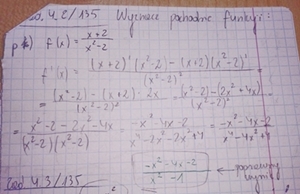 Zad. 4.2/135 Wyznacz pochodne funkcji:
f(x) = \frac{x+2}{x^2-2}
f'(x) = \frac{(x+2)'(x^2-2) - (x+2)(x^2-2)'}{(x^2-2)^2}
= \frac{(x^2-2) - (x+2) \cdot 2x}{(x^2-2)^2} = \frac{(x^2-2) - 2x^2+4x}{(x^2-2)^2}
= \frac{x^2-2-2x^2-4x}{(x^2-2)(x^2-2)} = \frac{-x^2-4x-2}{x^4-2x^2-2x^2+4} = \frac{-x^2-4x-2}{x^4-4x^2+4}
\frac{-x^2-4x-2}{x^2-1} ← poprawny wynik
Zad 4.3/135